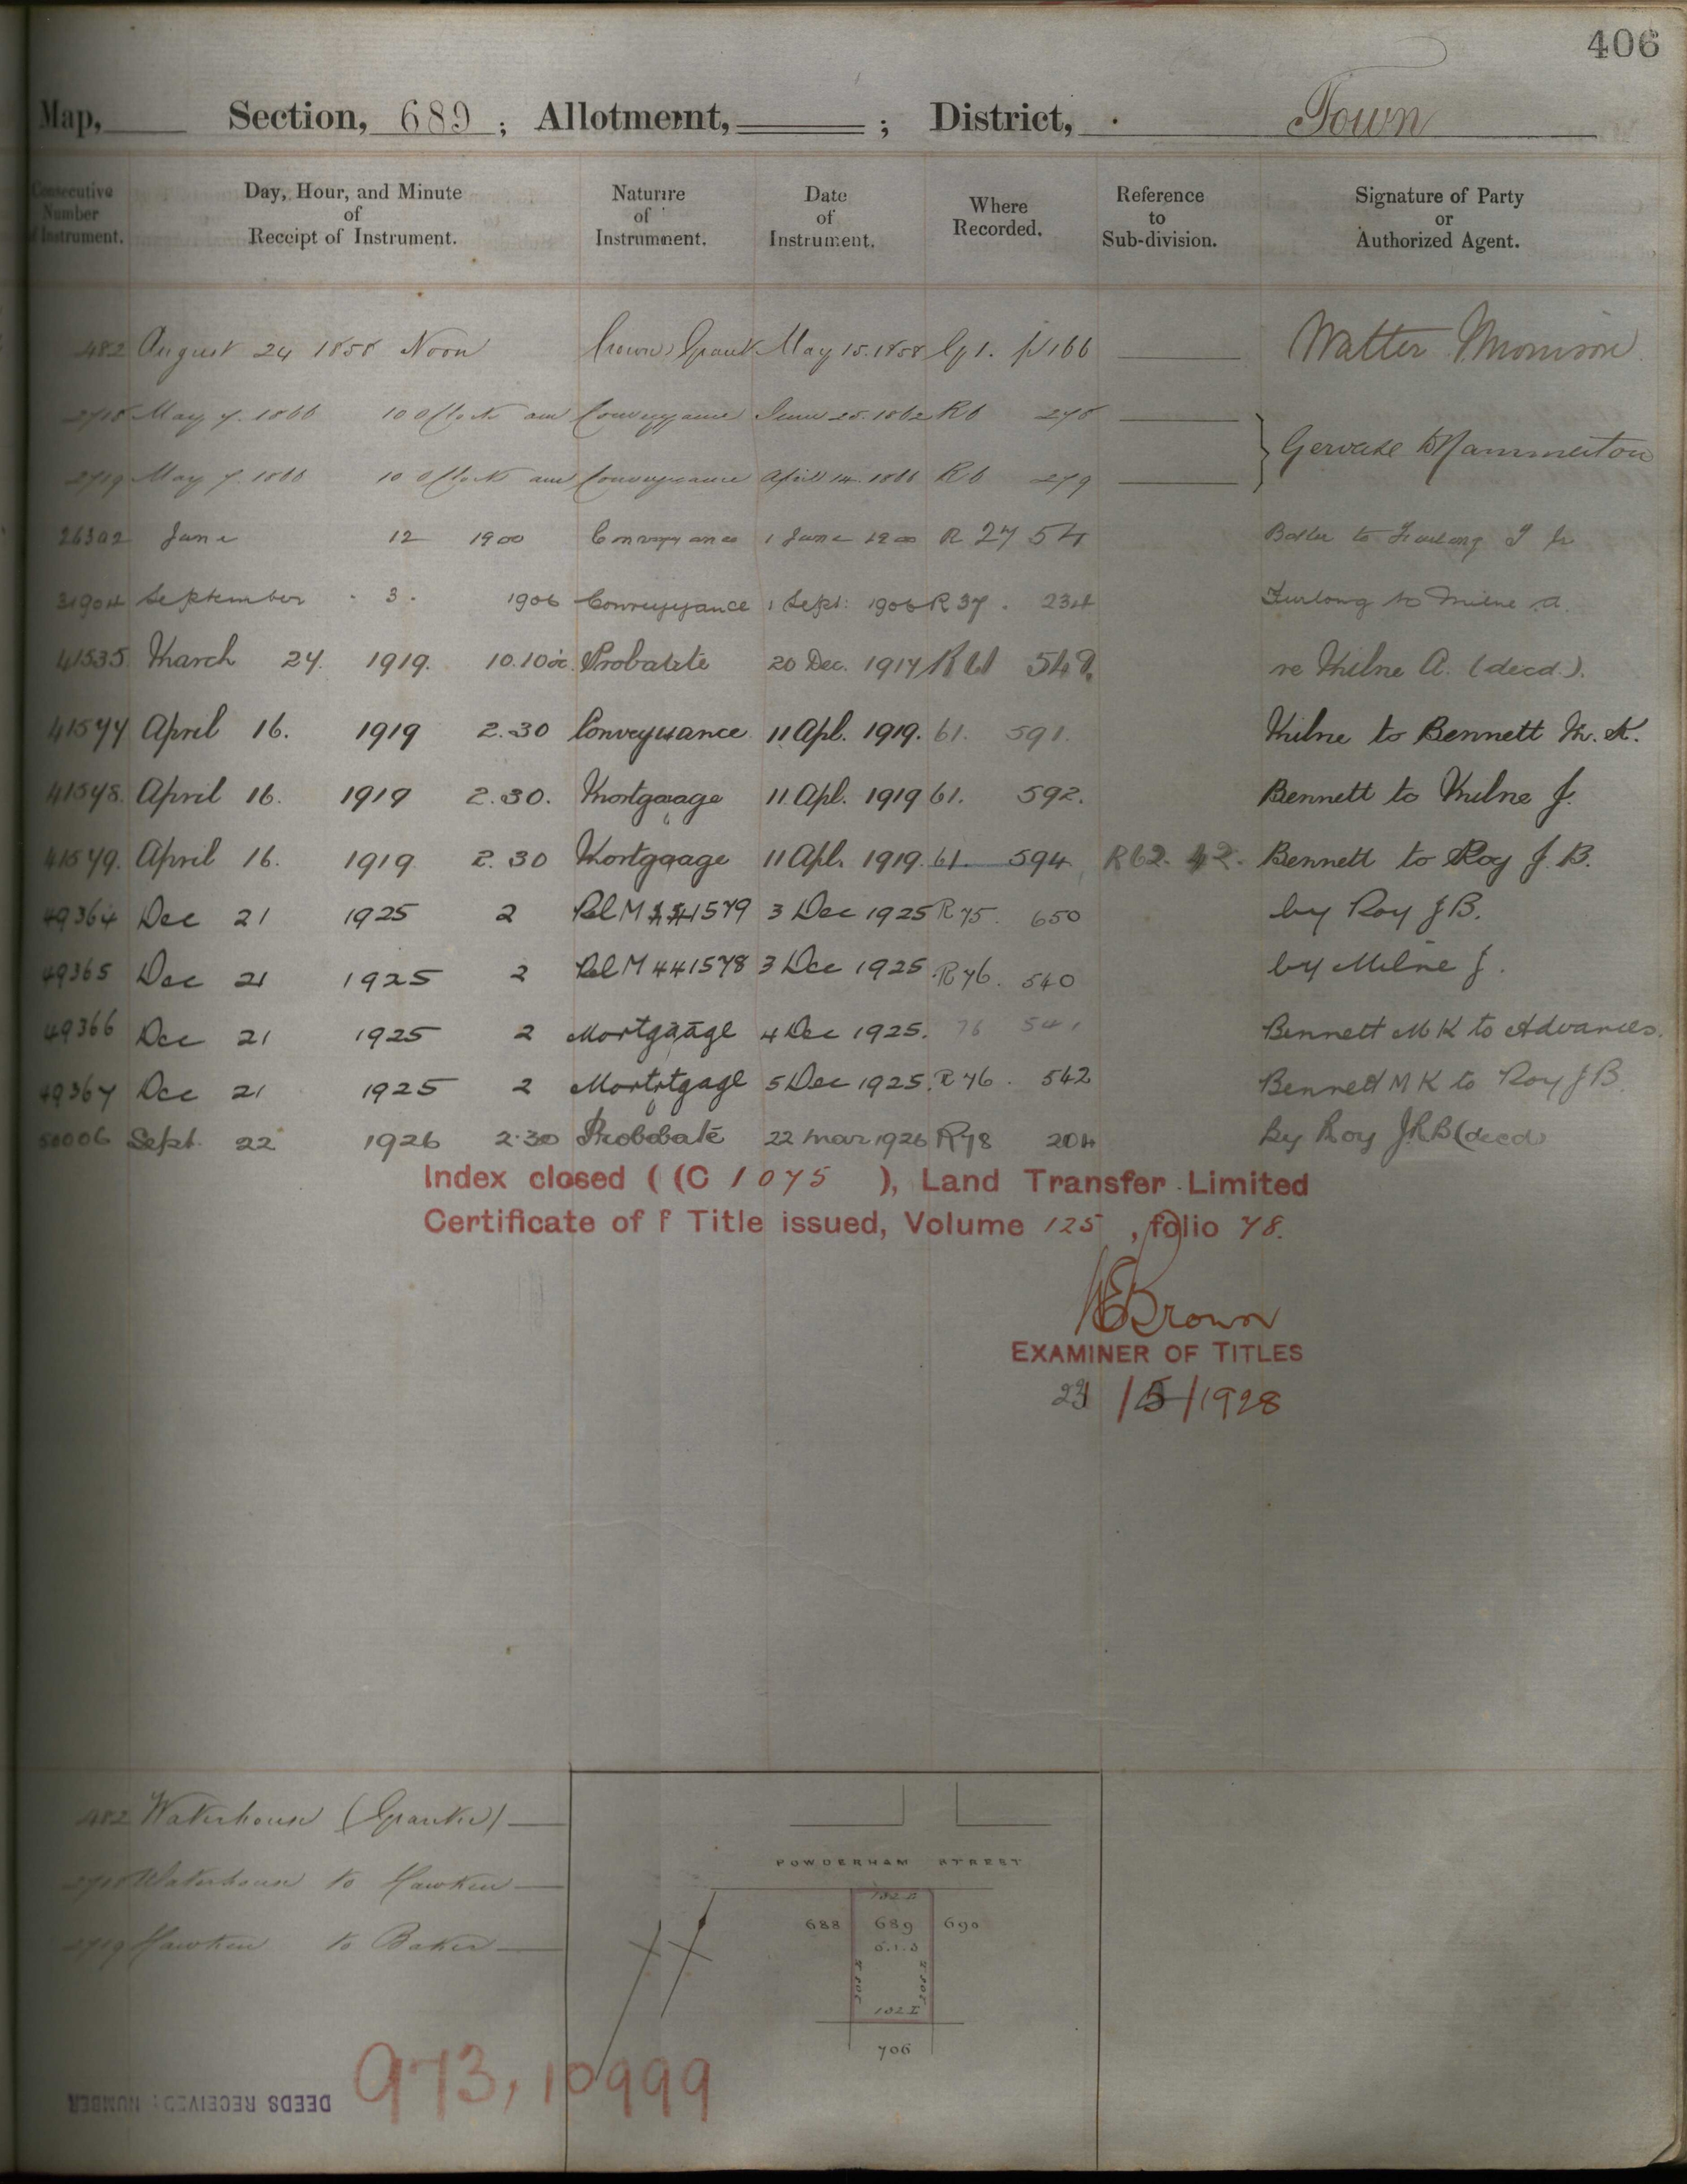 406
Map, Section, 689 ; Allotment, ; District, Town
Consecutive Number of Instrument.
Day, Hour, and Minute of Receipt of Instrument.
Nature of Instrument.
Date of Instrument.
Where Recorded.
Reference to Sub-division.
Signature of Party or Authorized Agent.
482 August 24 1858 Noon Crown Grant May 15. 1858 G 1. p 166 Walter Morrison
2718 May 7. 1866 10 o'clock am Conveyance June 25. 1862 R6 278
Gervase Hammerton
2719 May 7. 1866 10 o'clock am Conveyance April 14. 1866 R6 279
26302 June 12 1900 Conveyance 1 June 1900 R 27 54 to Furlong
31904 September 3. 1906 Conveyance 1 Sept: 1906 R 37. 234 Furlong to Milne A.
41535 March 24. 1919. 10.10 Probate 20 Dec. 1917 R 61 548. re Milne A. (decd.).
41577 April 16. 1919 2.30 Conveyance 11 Apl. 1919. 61. 591. Milne to Bennett M. K.
41578. April 16. 1919 2.30. Mortgage 11 Apl. 1919 61. 592. Bennett to Milne J.
41579. April 16. 1919 2.30 Mortgage 11 Apl. 1919. 61. 594 R62. 42. Bennett to Roy J. B.
49364 Dec 21 1925 2 Rel M 41579 3 Dec 1925 R 75. 650 by Roy J B.
49365 Dec 21 1925 2 Rel M 41578 3 Dec 1925. R 76. 540 by Milne J.
49366 Dec 21 1925 2 Mortgage 4 Dec 1925. 76 541 Bennett M K to Advances.
49367 Dec 21 1925 2 Mortgage 5 Dec 1925. R 76. 542 Bennett M K to Roy J B.
50006 Sept. 22 1926 2.30 Probate 22 Mar 1926 R78 204 By Roy J.R.B (decd)
Index closed (C 1075 ), Land Transfer Limited
Certificate of Title issued, Volume 125 , folio 78.
Brown
EXAMINER OF TITLES
/ 5 / 1928
482 Waterhouse (Grantee)
2718 Waterhouse to Hawken
2719 Hawken to Baker
POWDERHAM STREET
688 689 690
0.1.0
706
973, 10999
DEEDS RECEIVED: NUMBER